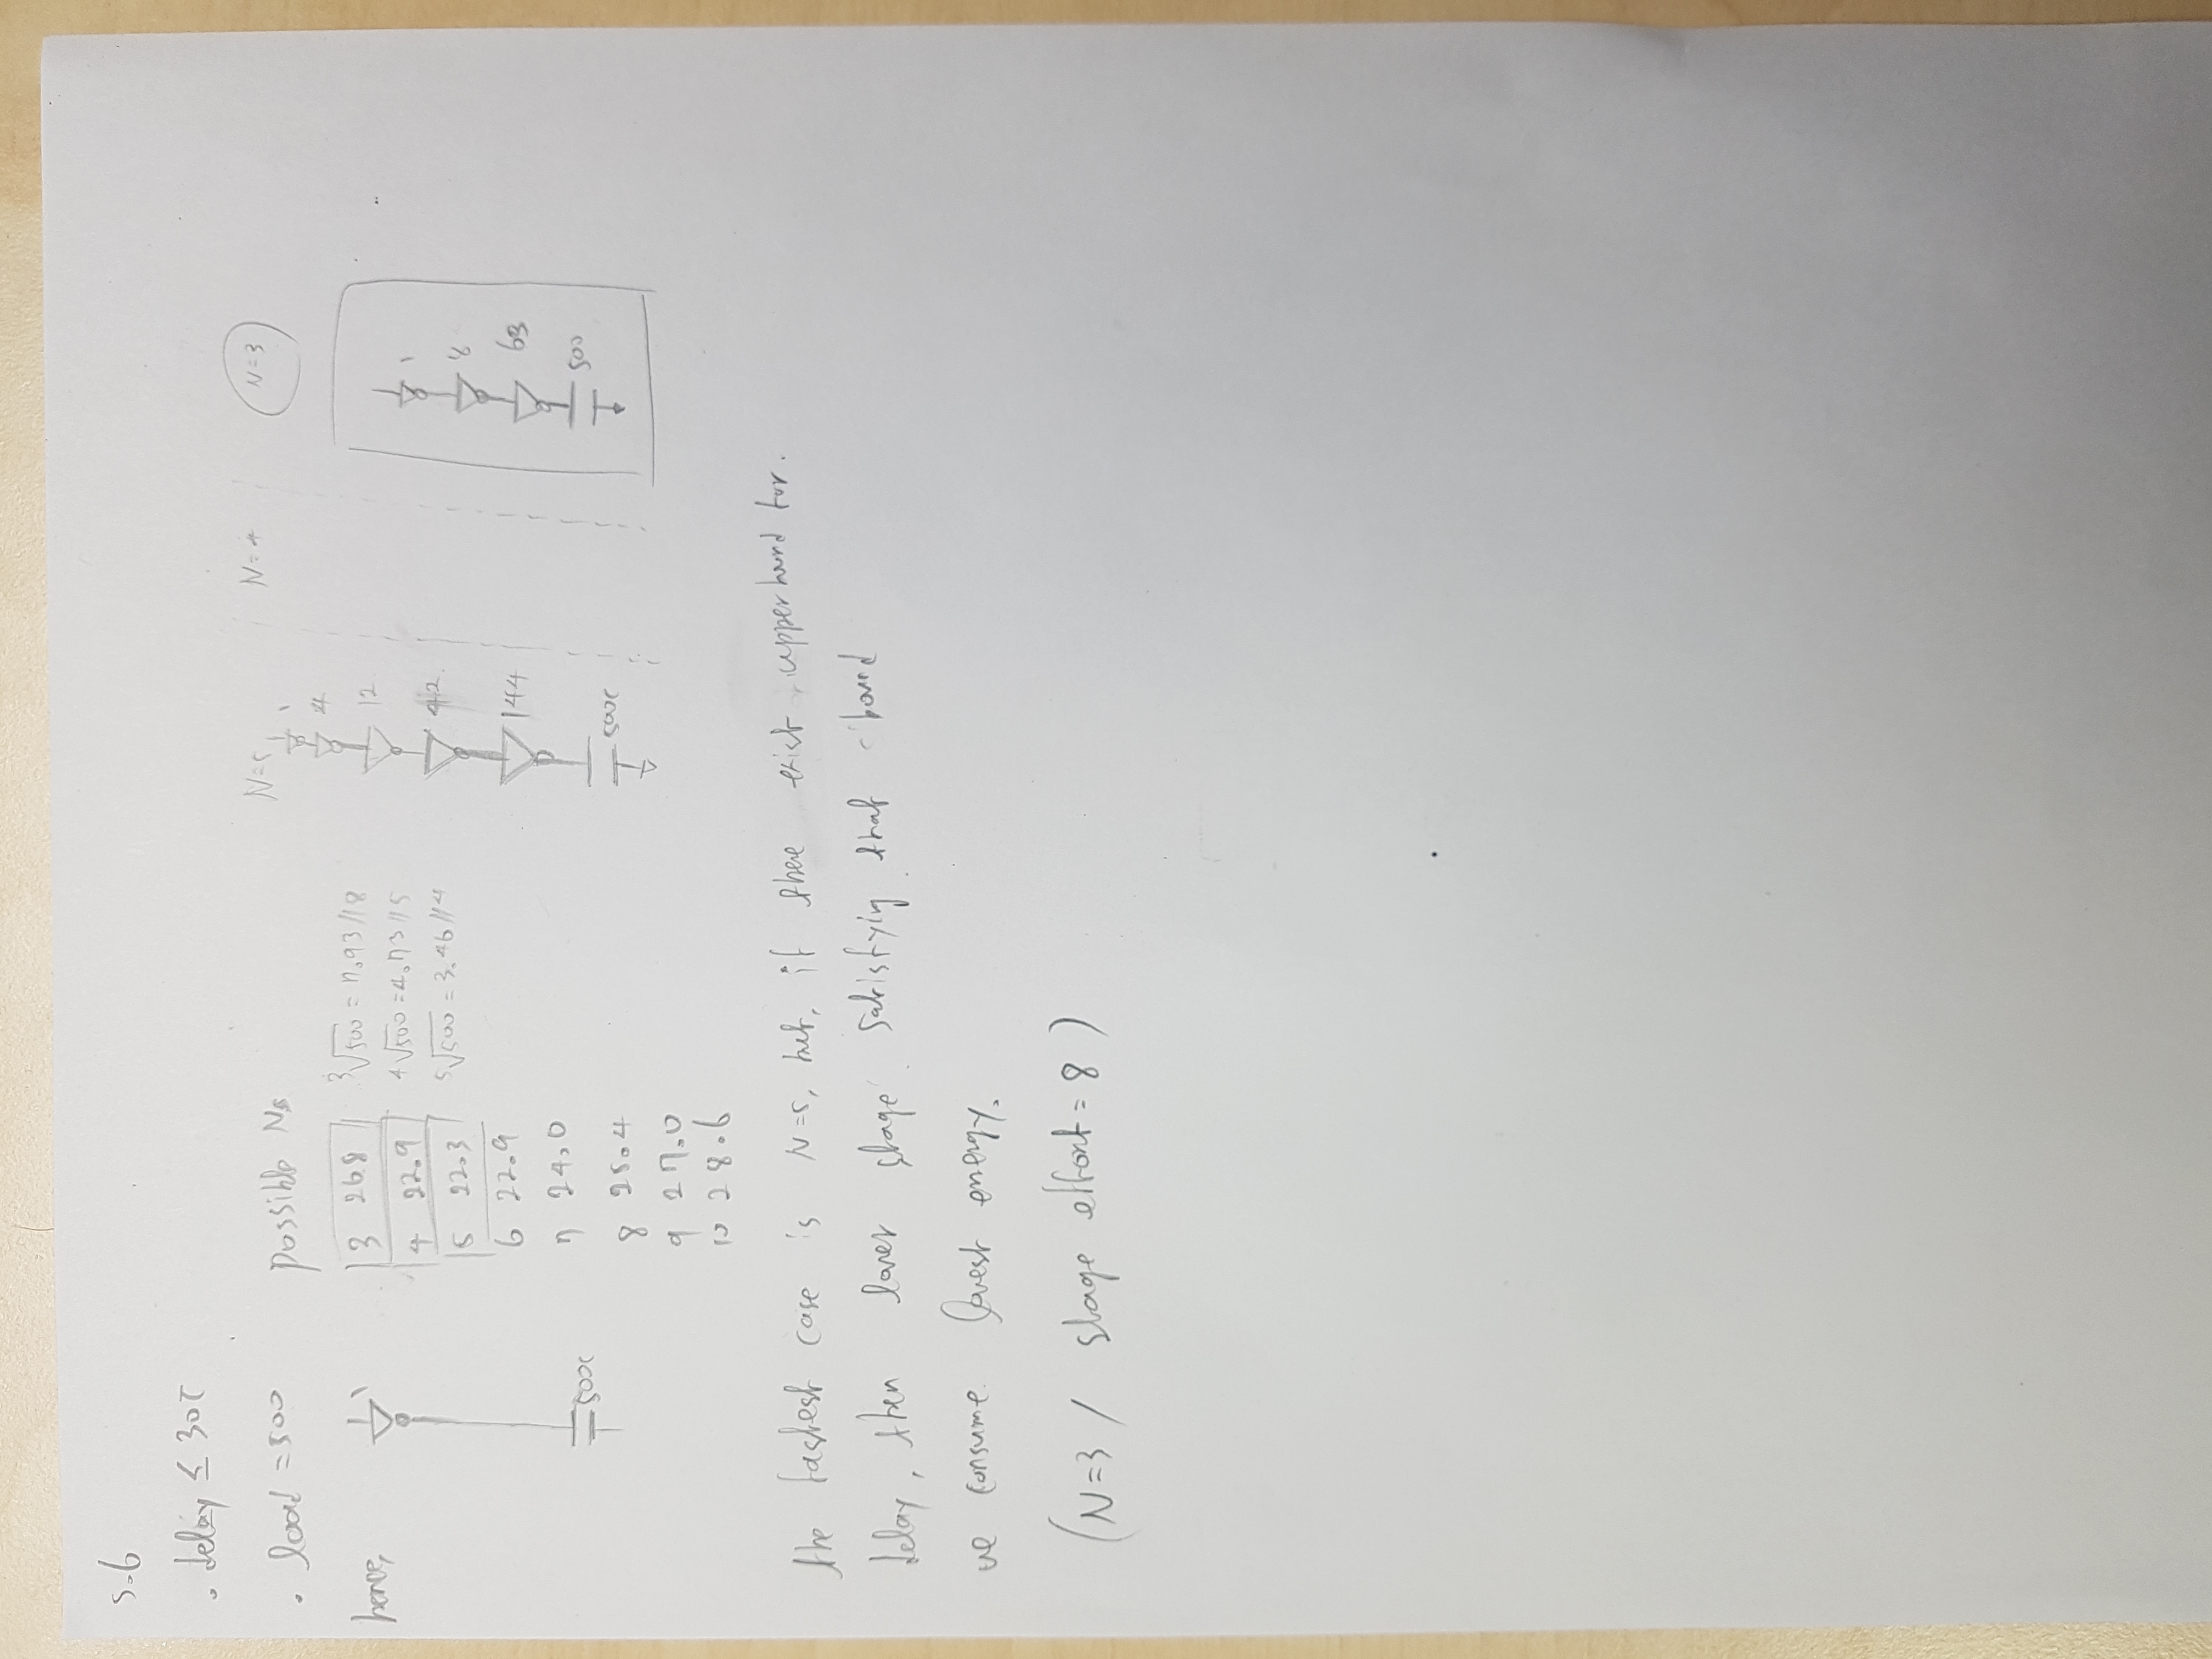 5.6
• delay ≤ 30τ
• load = 500
hence,
1
500C
possible Ns
3 26.8 ³√500 = 7.93 // 8
4 22.9 4√500 = 4.73 // 5
5 22.3 5√500 = 3.46 // 4
6 22.9
7 24.0
8 25.4
9 27.0
10 28.6
N=5
1
4
12
42
144
500C
N=4
N=3
1
8
63
500
the fastest case is N=5, but, if there exist upper bound for.
delay, then lower stage satisfying that bound
we consume lowest energy.
(N=3 / stage effort = 8)